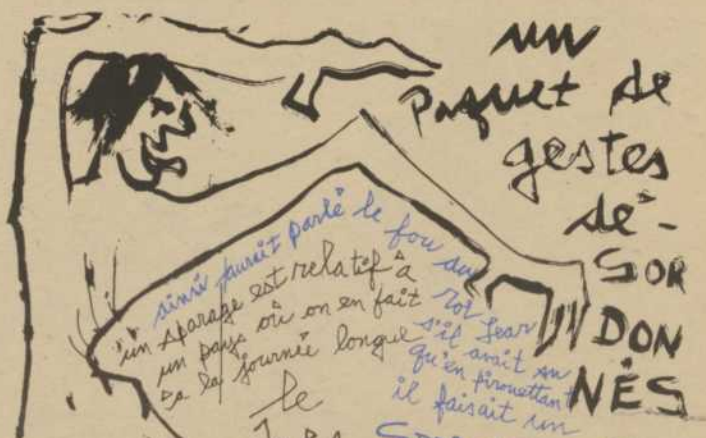 un
paquet de
gestes
dé-
SOR
DON
NÉS
ainsi aurait parlé le fou du
roi Lear
s'il avait su
qu'en pirouettant
il faisait un
un sparage est relatif à
un pays où on en fait
à la journée longue
le